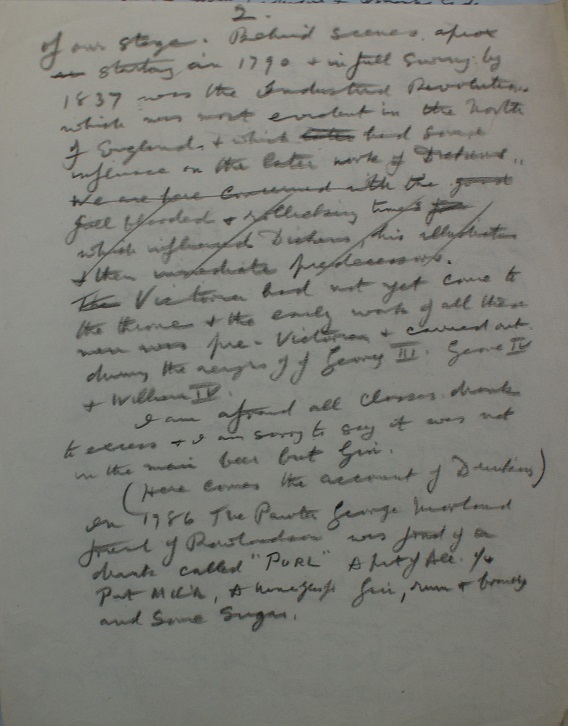 2.
of our stage. Behind scenes, aprox
starting in 1790 + in full swing by
1837 was the Industrial Revolution
which was most evident in the North
of England. + which later had some
influence on the later work of Dickens.
We are here concerned with the good
full blooded + rollicking times
which influenced Dickens, his illustrators
+ their immediate predecessors.
The Victoria had not yet come to
the throne + the early work of all these
men was pre-Victorian + carried out
during the reigns of George III. George IV
+ William IV.
I am afraid all classes drank
to excess + I am sorry to say it was not
in the main beer but Gin.
(Here comes the account of Drinking)
In 1786 The Painter George Morland
friend of Rowlandson was fond of a
drink called "PURL" A pint of Ale. 1/4
Pint Milk, A wineglass Gin, rum + brandy
and Some Sugar.